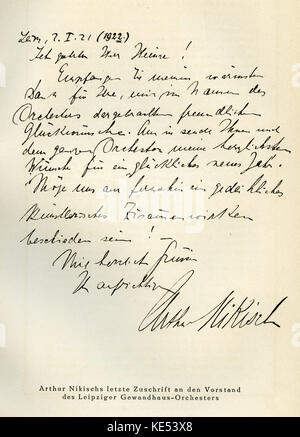 2. I. 21 (1922)
Herr Heinze!
Empfangen Sie meinen wärmsten
Dank für Ihre, mir im Namen des
Orchesters dargebrachten freundlichen
Glückwünsche. Ihnen und
dem ganzen Orchester meine herzlichsten
Wünsche für ein glückliches neues Jahr.
Möge uns auch fernerhin ein gedeihliches
künstlerisches Zusammenwirken
beschieden sein!
Mit herzlichen Grüßen
Arthur Nikisch
Arthur Nikischs letzte Zuschrift an den Vorstand
des Leipziger Gewandhaus-Orchesters
alamy stock photo
KE53X8
www.alamy.com